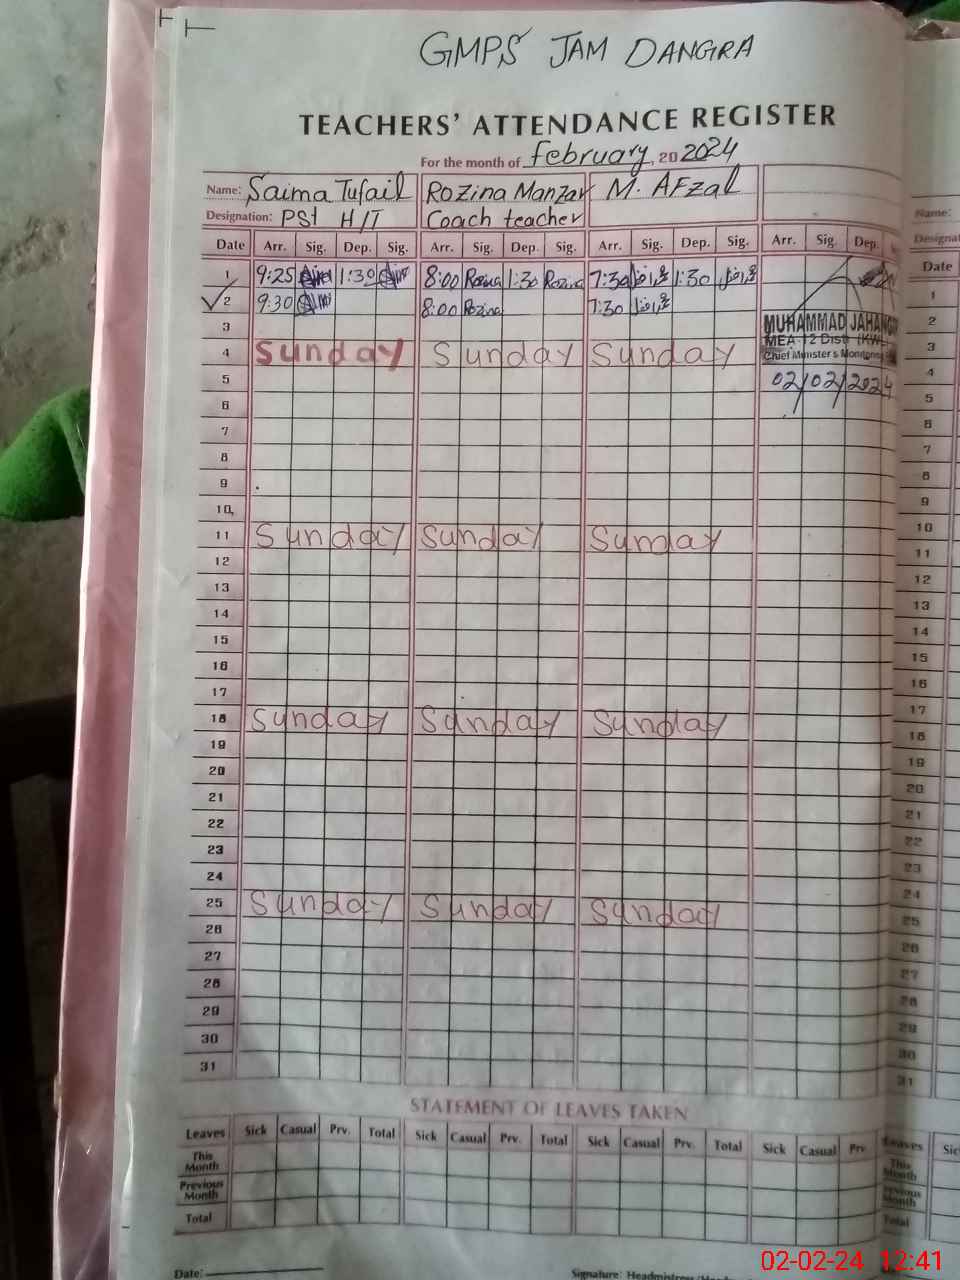 GMPS JAM DANGRA
TEACHERS' ATTENDANCE REGISTER
For the month of February, 20 2024
Name: Saima Tufail Rozina Manzar M. AFzal
Designation: PSt H/T Coach teacher
Date Arr. Sig. Dep. Sig. Arr. Sig. Dep. Sig. Arr. Sig. Dep. Sig. Arr. Sig. Dep.
1 9:25 1:30 8:00 Rozina 1:30 Rozina 7:30 1:30
2 9:30 8:00 Rozina 7:30
3
4 Sunday Sunday Sunday
5
6
7
8
9
10
11 Sunday Sunday Sunday
12
13
14
15
16
17
18 Sunday Sunday Sunday
19
20
21
22
23
24
25 Sunday Sunday Sunday
26
27
28
29
30
31
MUHAMMAD JAHANG
MEA-12 Distt (KWL)
Chief Minister's Monitoring
02/02/2024
STATEMENT OF LEAVES TAKEN
Leaves Sick Casual Prv. Total Sick Casual Prv. Total Sick Casual Prv. Total Sick Casual Prv
This Month
Previous Month
Total
Date:
Signature: Headmistress
Name:
Designat
Date
1
2
3
4
5
6
7
8
9
10
11
12
13
14
15
16
17
18
19
20
21
22
23
24
25
26
27
28
29
30
31
Leaves Sic
This Month
Previous Month
Total
02-02-24 12:41